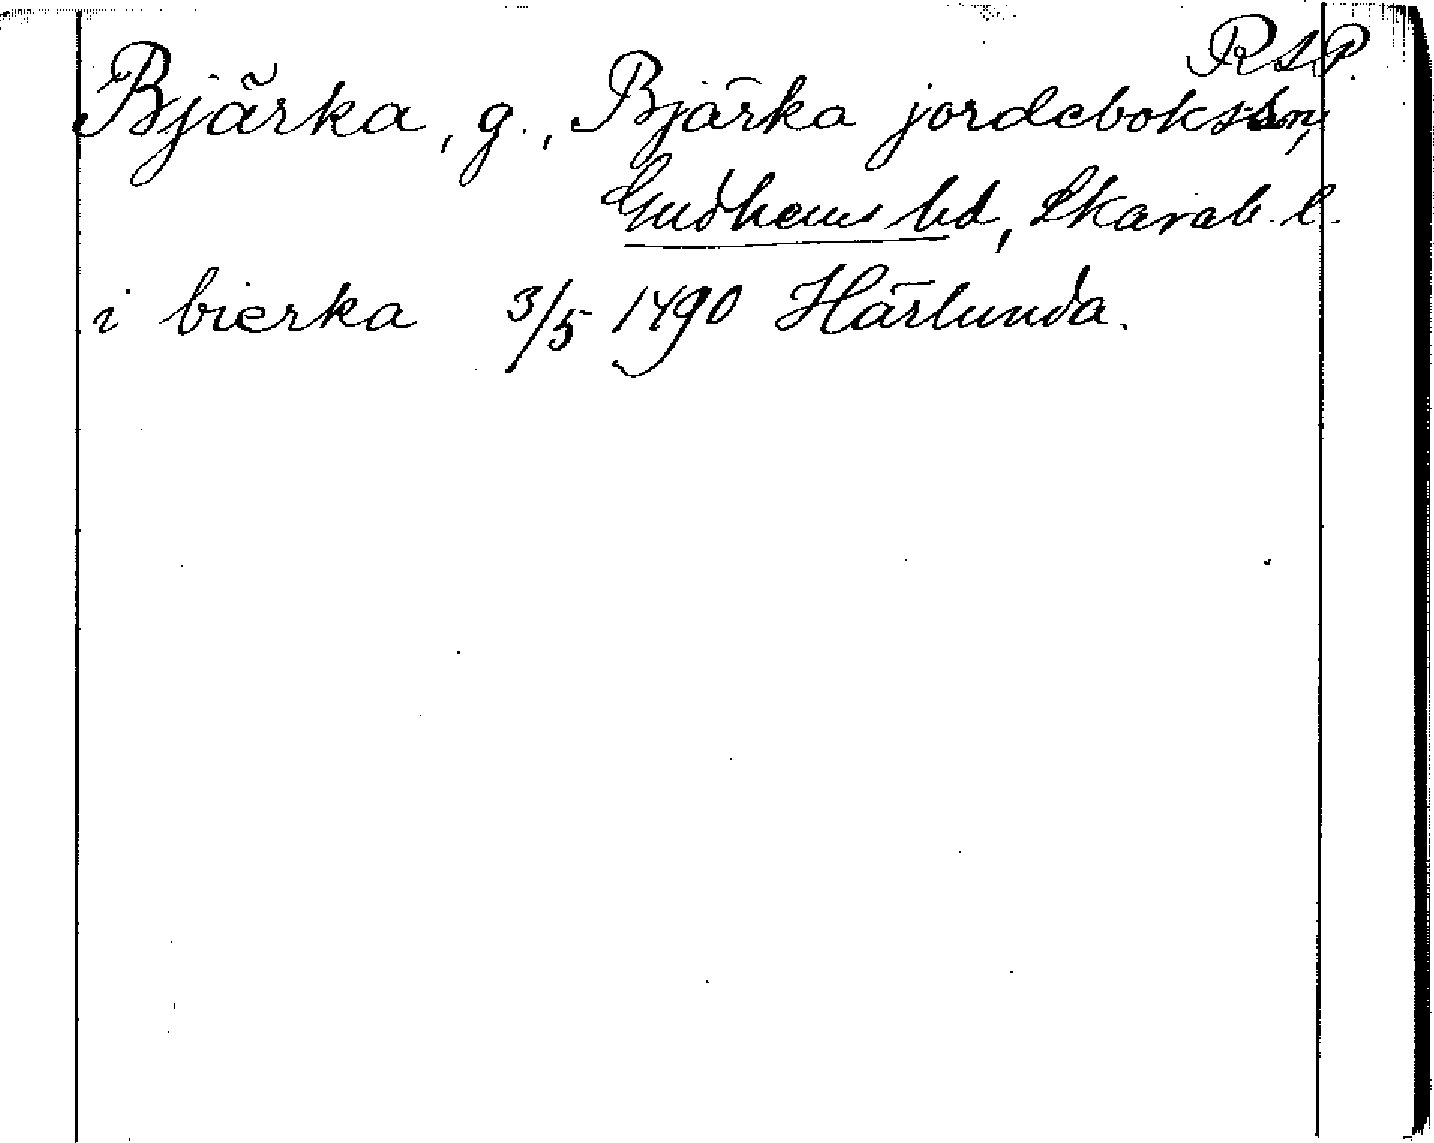 RSP.
Bjärka, g., Bjärka jordebokssn,
Gudhems hd, Skarab. l.
i bierka 3/5 1490 Härlunda.